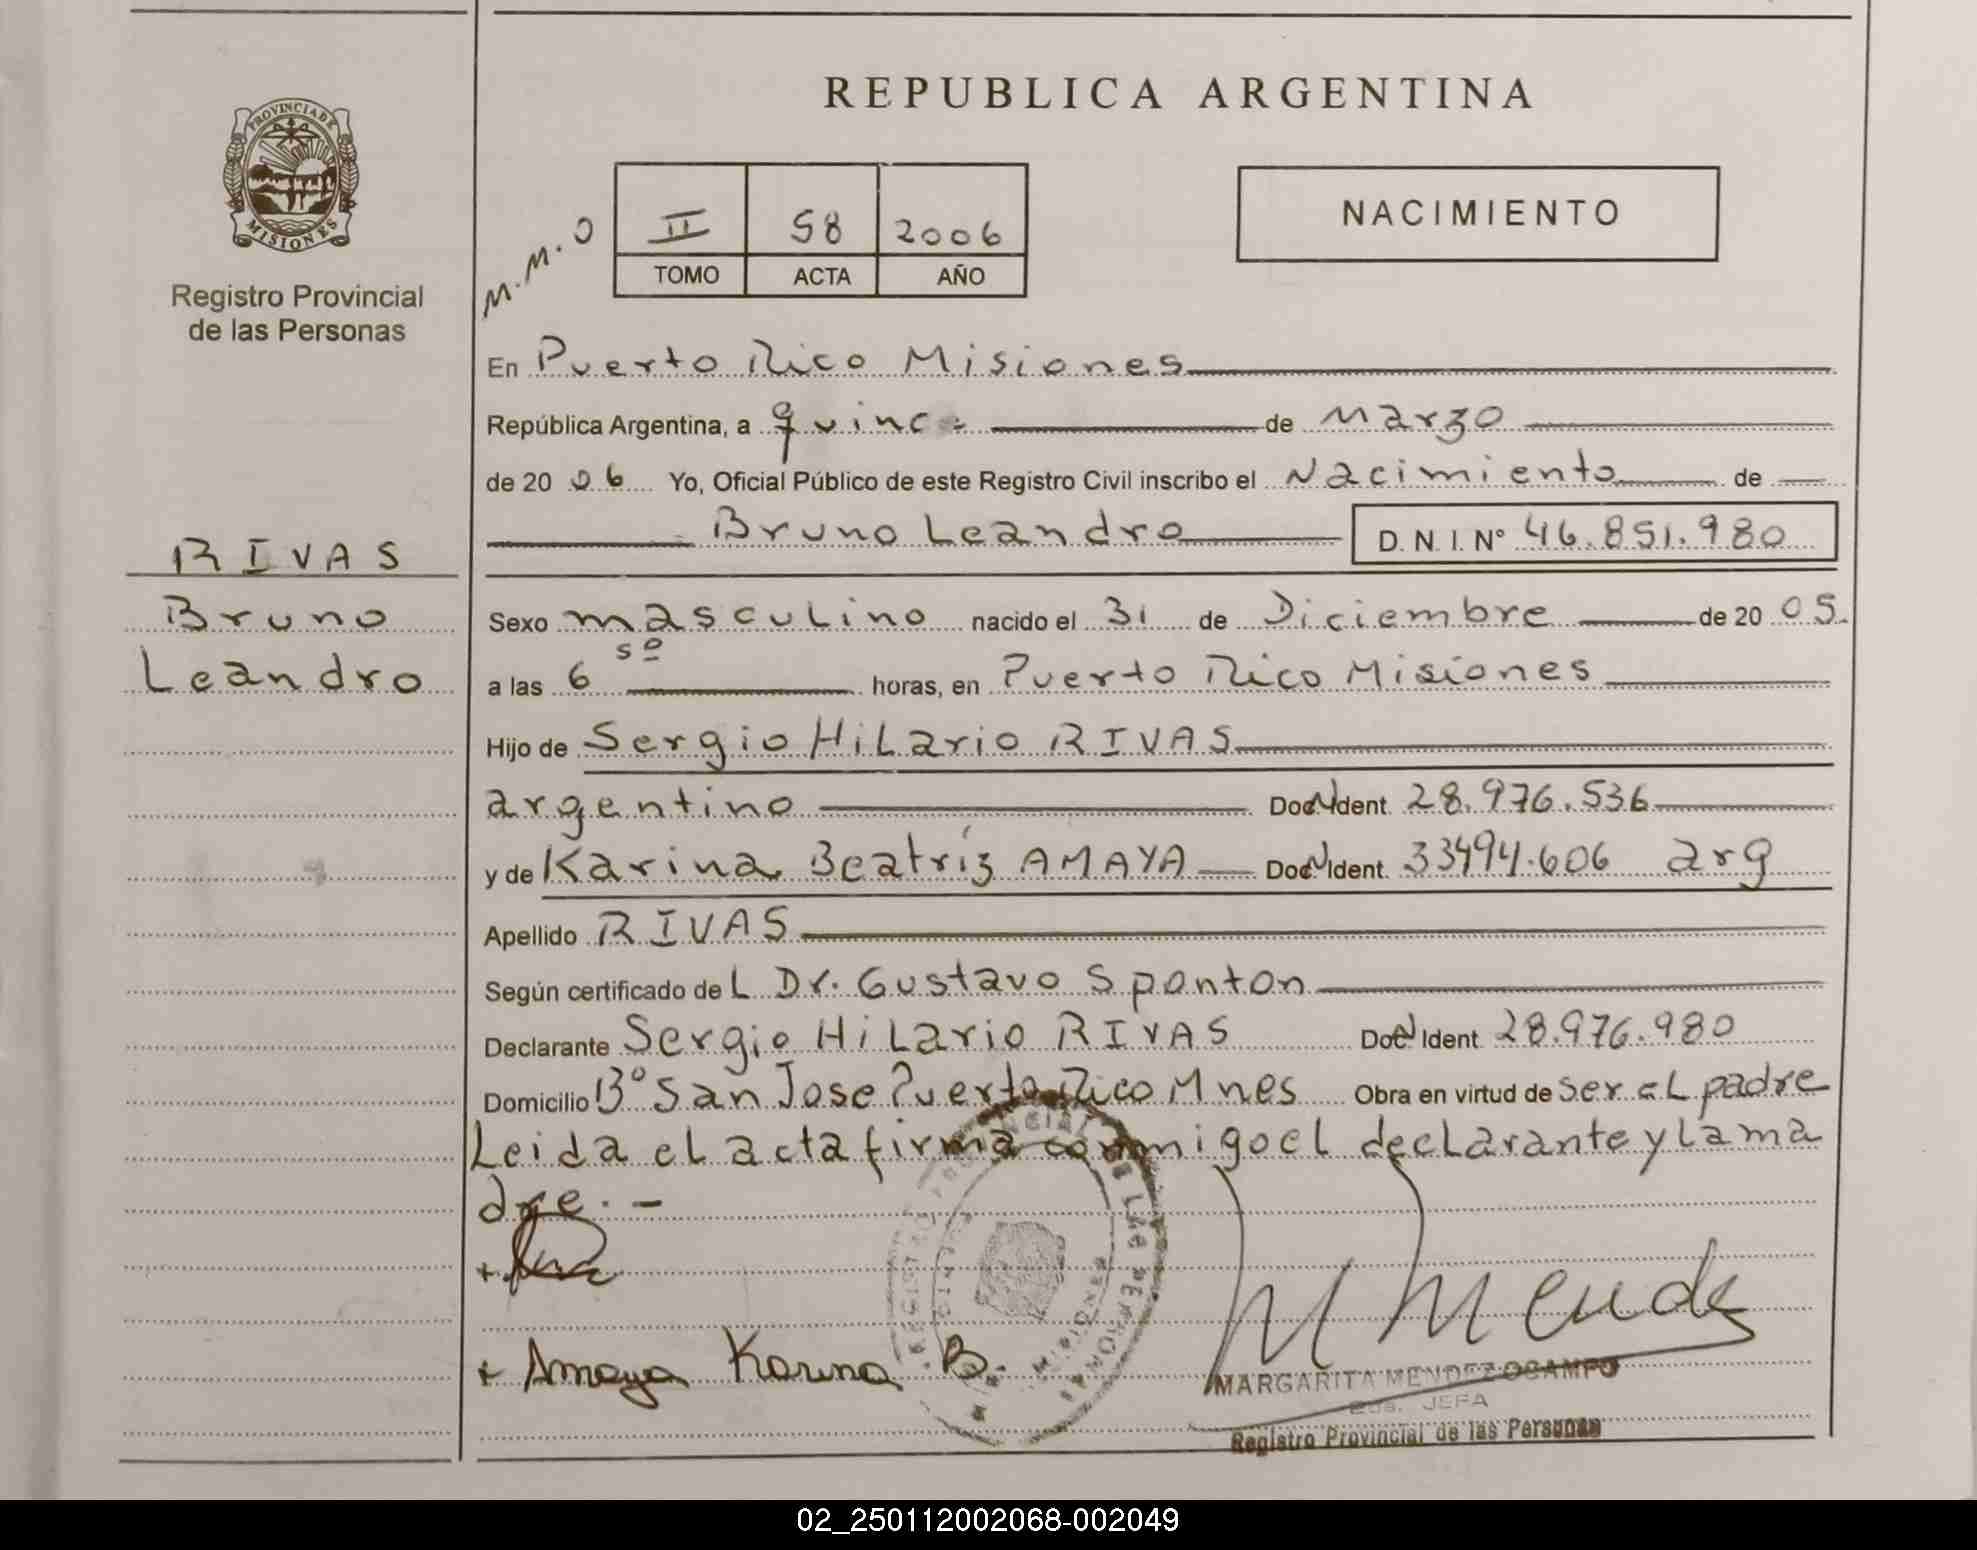 REPUBLICA ARGENTINA
PROVINCIA DE
MISIONES
Registro Provincial
de las Personas
M.M.O
II 58 2006
TOMO ACTA AÑO
NACIMIENTO
RIVAS
Bruno
Leandro
En Puerto Rico Misiones
República Argentina, a quince de Marzo
de 20 06 Yo, Oficial Público de este Registro Civil inscribo el Nacimiento de
Bruno Leandro D. N. I. N° 46.851.980
Sexo masculino nacido el 31 de Diciembre de 20 05.
a las 6 50 horas, en Puerto Rico Misiones
Hijo de Sergio Hilario RIVAS
argentino Doc N Ident. 28.976.536
y de Karina Beatríz AMAYA Doc N Ident. 33494.606 arg
Apellido RIVAS
Según certificado de L Dr. Gustavo Sponton
Declarante Sergio Hilario RIVAS Doc N Ident 28.976.980
Domicilio B° San Jose Puerto Rico Mnes Obra en virtud de ser el padre
Leida el acta firma conmigo el declarante y la ma
dre. -
+
+ Amaya Karina B.
M Mendez
MARGARITA MENDEZ OCAMPO
JEFA
Registro Provincial de las Personas
02_250112002068-002049